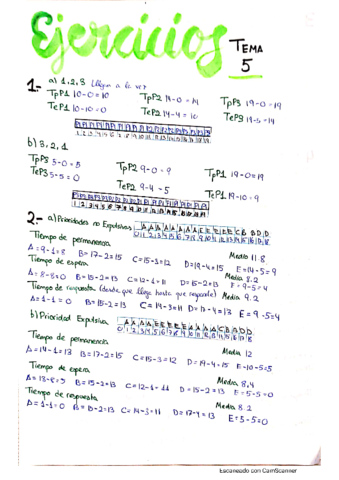 Ejercicios TEMA 5
1- a) 1,2,3 llegan a la vez
TpP1 10-0=10 TpP2 14-0=14 TpP3 19-0=19
TeP1 10-10=0 TeP2 14-4=10 TeP3 19-5=14
b) 3, 2, 1
TpP3 5-0=5 TpP2 9-0=9 TpP1 19-0=19
TeP3 5-5=0 TeP2 9-4=5 TeP1 19-10=9
2- a) Prioridades no Expulsivas
Tiempo de permanencia Media 11.8
A=9-1=8 B=17-2=15 C=15-3=12 D=19-4=15 E=14-5=9
Tiempo de espera Media 8.2
A=8-8=0 B=15-2=13 C=12-1=11 D=15-2=13 E=9-5=4
Tiempo de respuesta (desde que llega hasta que responde) Media 9.2
A=1-1=0 B=15-2=13 C=14-3=11 D=17-4=13 E=9-5=4
b) Prioridad Expulsiva
Tiempo de permanencia Media 12
A=14-1=13 B=17-2=15 C=15-3=12 D=19-4=15 E=10-5=5
Tiempo de espera Media 8,4
A=13-8=5 B=15-2=13 C=12-1=11 D=15-2=13 E=5-5=0
Tiempo de respuesta Media 8.2
A=1-1=0 B=15-2=13 C=14-3=11 D=17-4=13 E=5-5=0
Escaneado con CamScanner